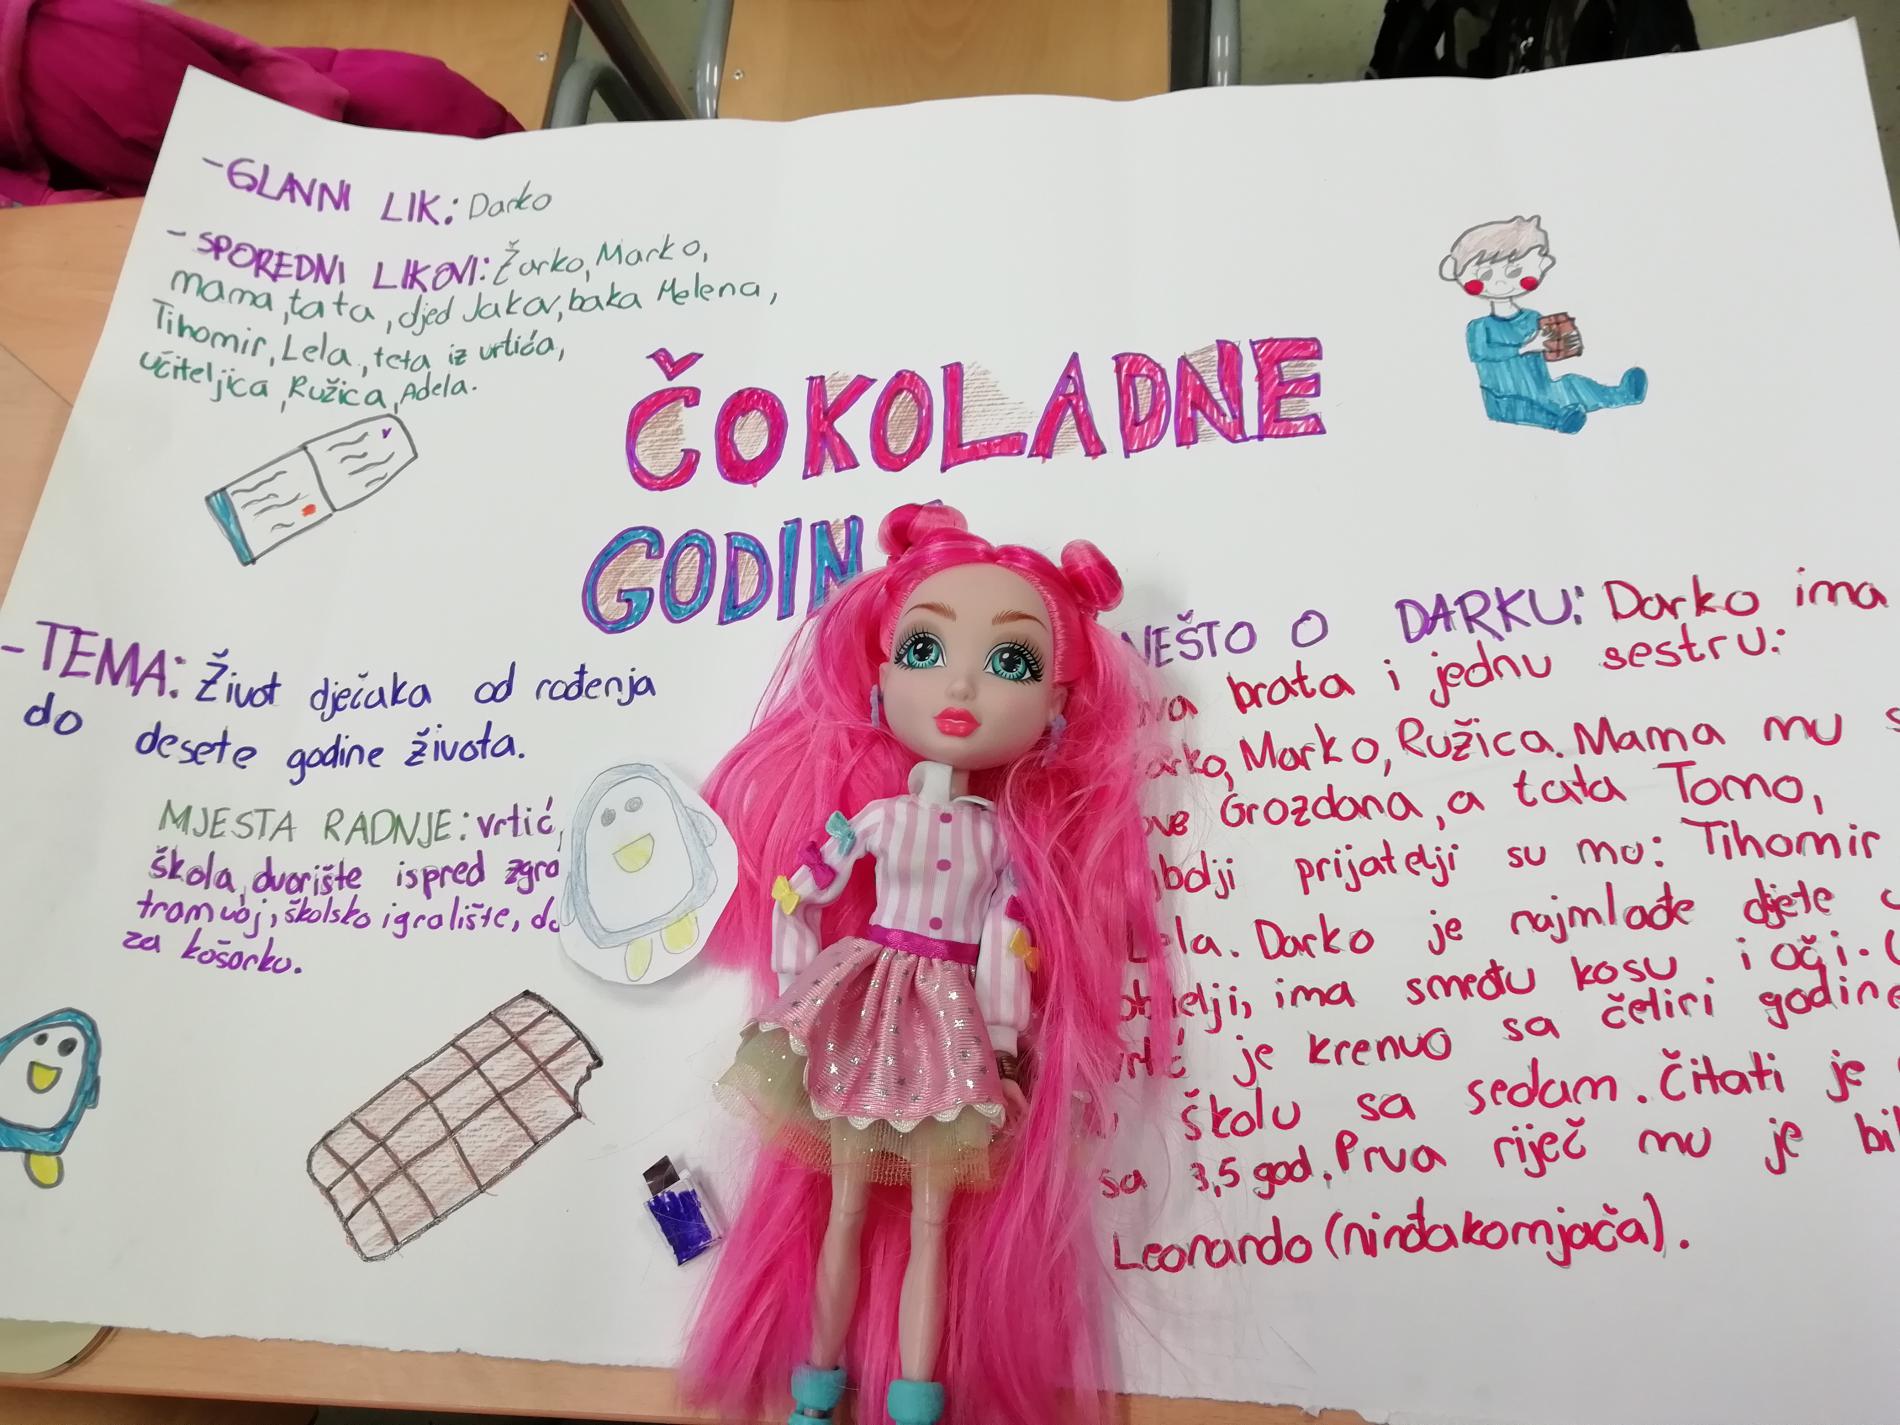 -GLAVNI LIK: Darko
-SPOREDNI LIKOVI: Žarko, Marko,
mama, tata, djed Jakov, baka Helena,
Tihomir, Lela, teta iz vrtića,
učiteljica, Ružica, Adela.
ČOKOLADNE
GODIN
-TEMA: Život dječaka od rođenja
do desete godine života.
MJESTA RADNJE: vrtić,
škola, dvorište ispred zgra
tramvaj, školsko igralište, do
za košarku.
NEŠTO O DARKU: Darko ima
brata i jednu sestru:
Marko, Ružica. Mama mu
Grozdana, a tata Tomo,
prijatelji su mu: Tihomir
Lela. Darko je najmlađe djete
ima smeđu kosu i oči.
je krenuo sa četiri godine
školu sa sedam. Čitati je
sa 3,5 god. Prva riječ mu je
Leonardo (ninđakornjača).